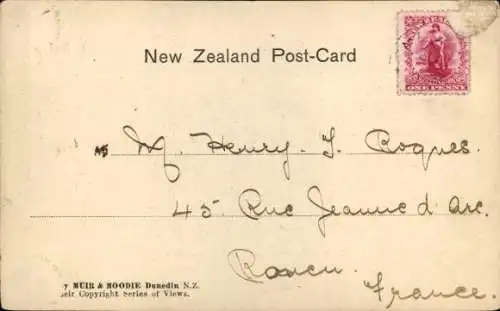 New Zealand Post-Card
ONE PENNY
M. Henry. J. Boques.
45 Rue Jeanne d'Arc.
Rouen.
France.
y MUIR & MOODIE Dunedin N.Z.
eir Copyright Series of Views.